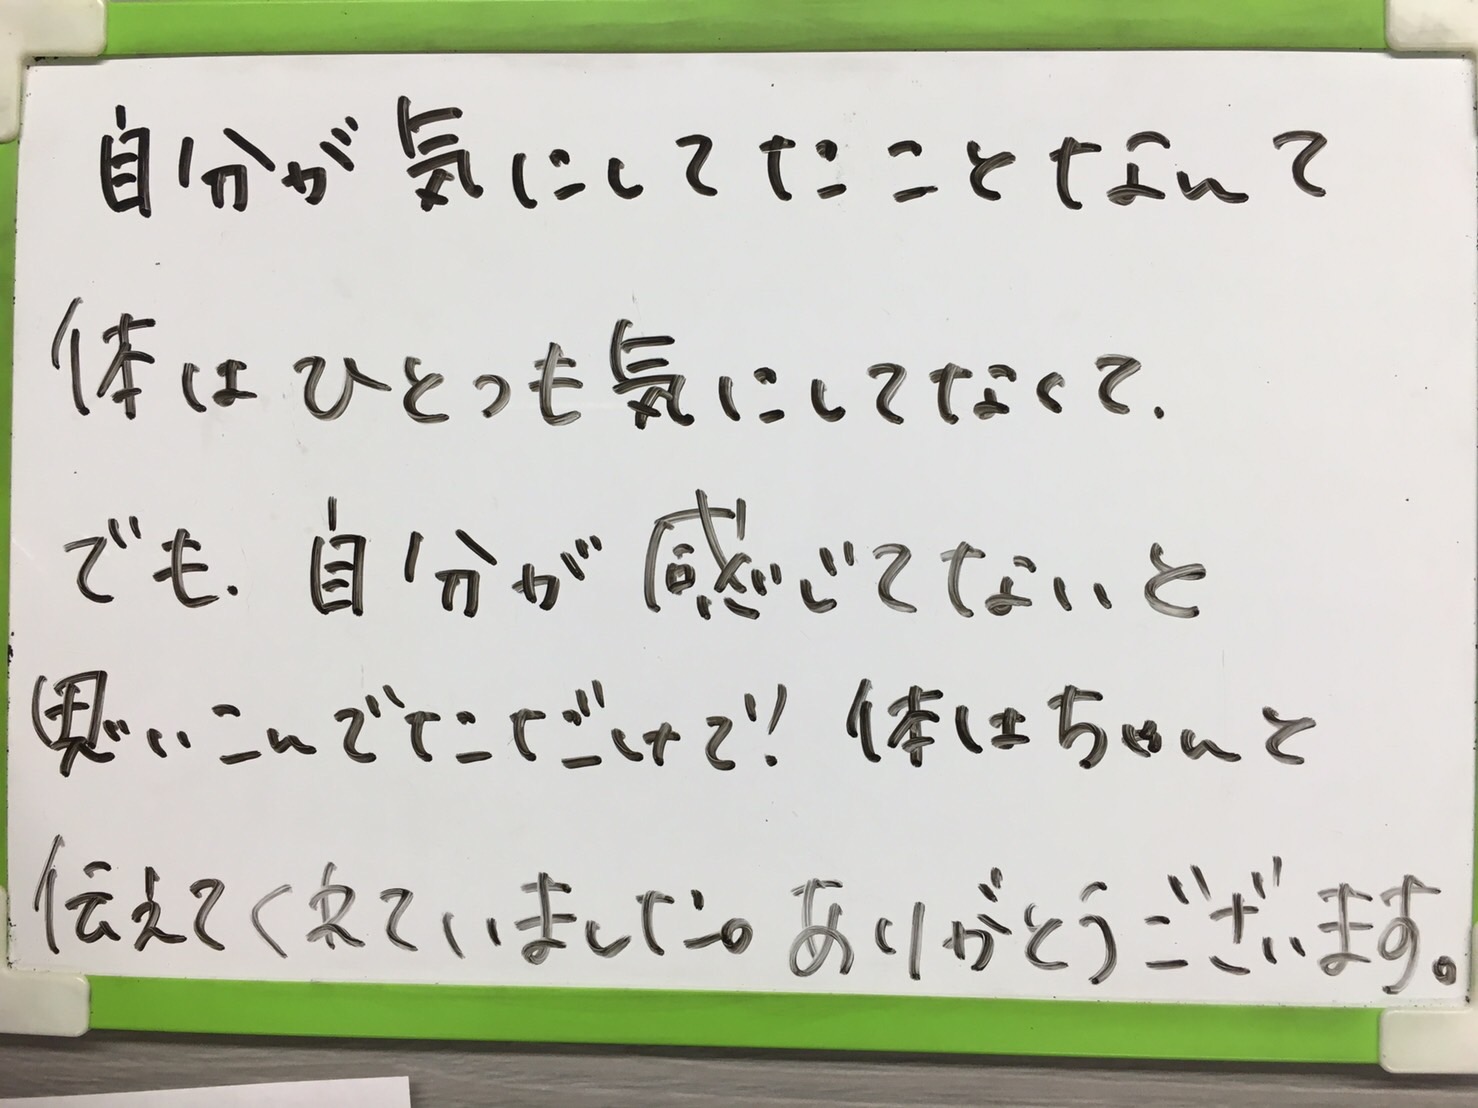 自分が気にしてたことなんて
体はひとつも気にしてなくて.
でも.自分が感じてないと
思いこんでただけで!体はちゃんと
伝えてくれていました。ありがとうございます。